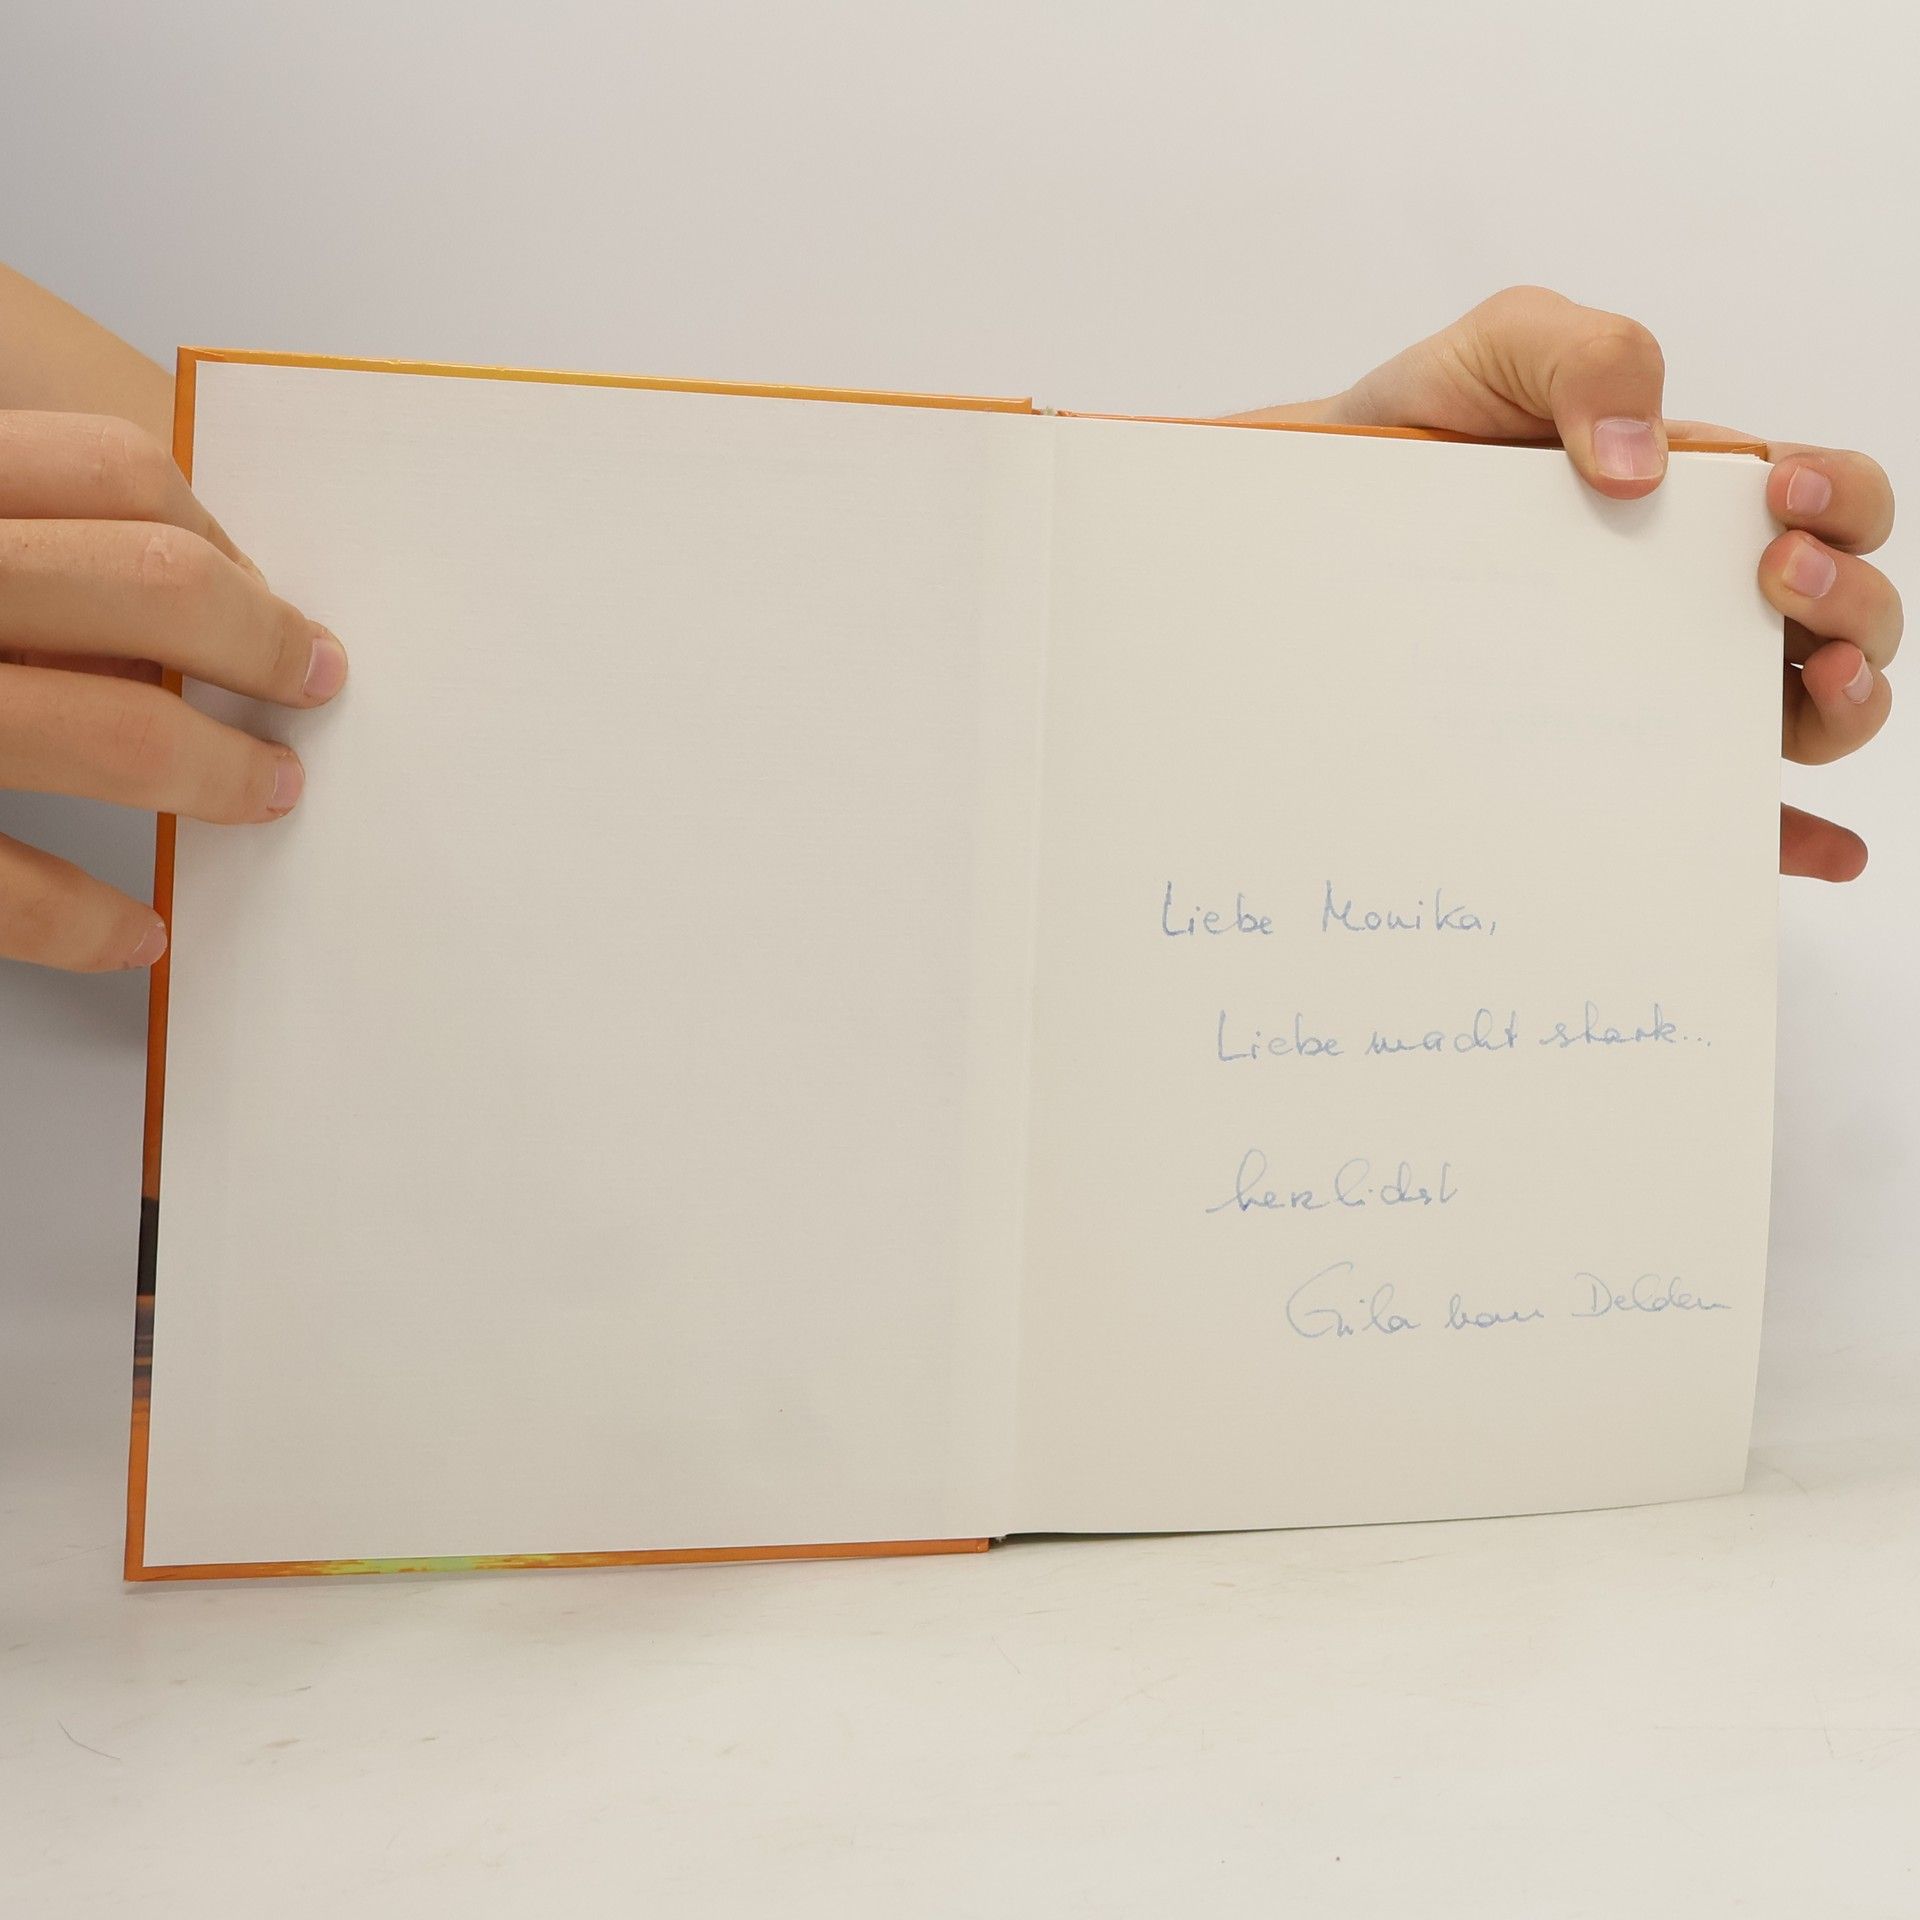 Liebe Monika,
Liebe macht stark...
herzlichst
Gila van Delden